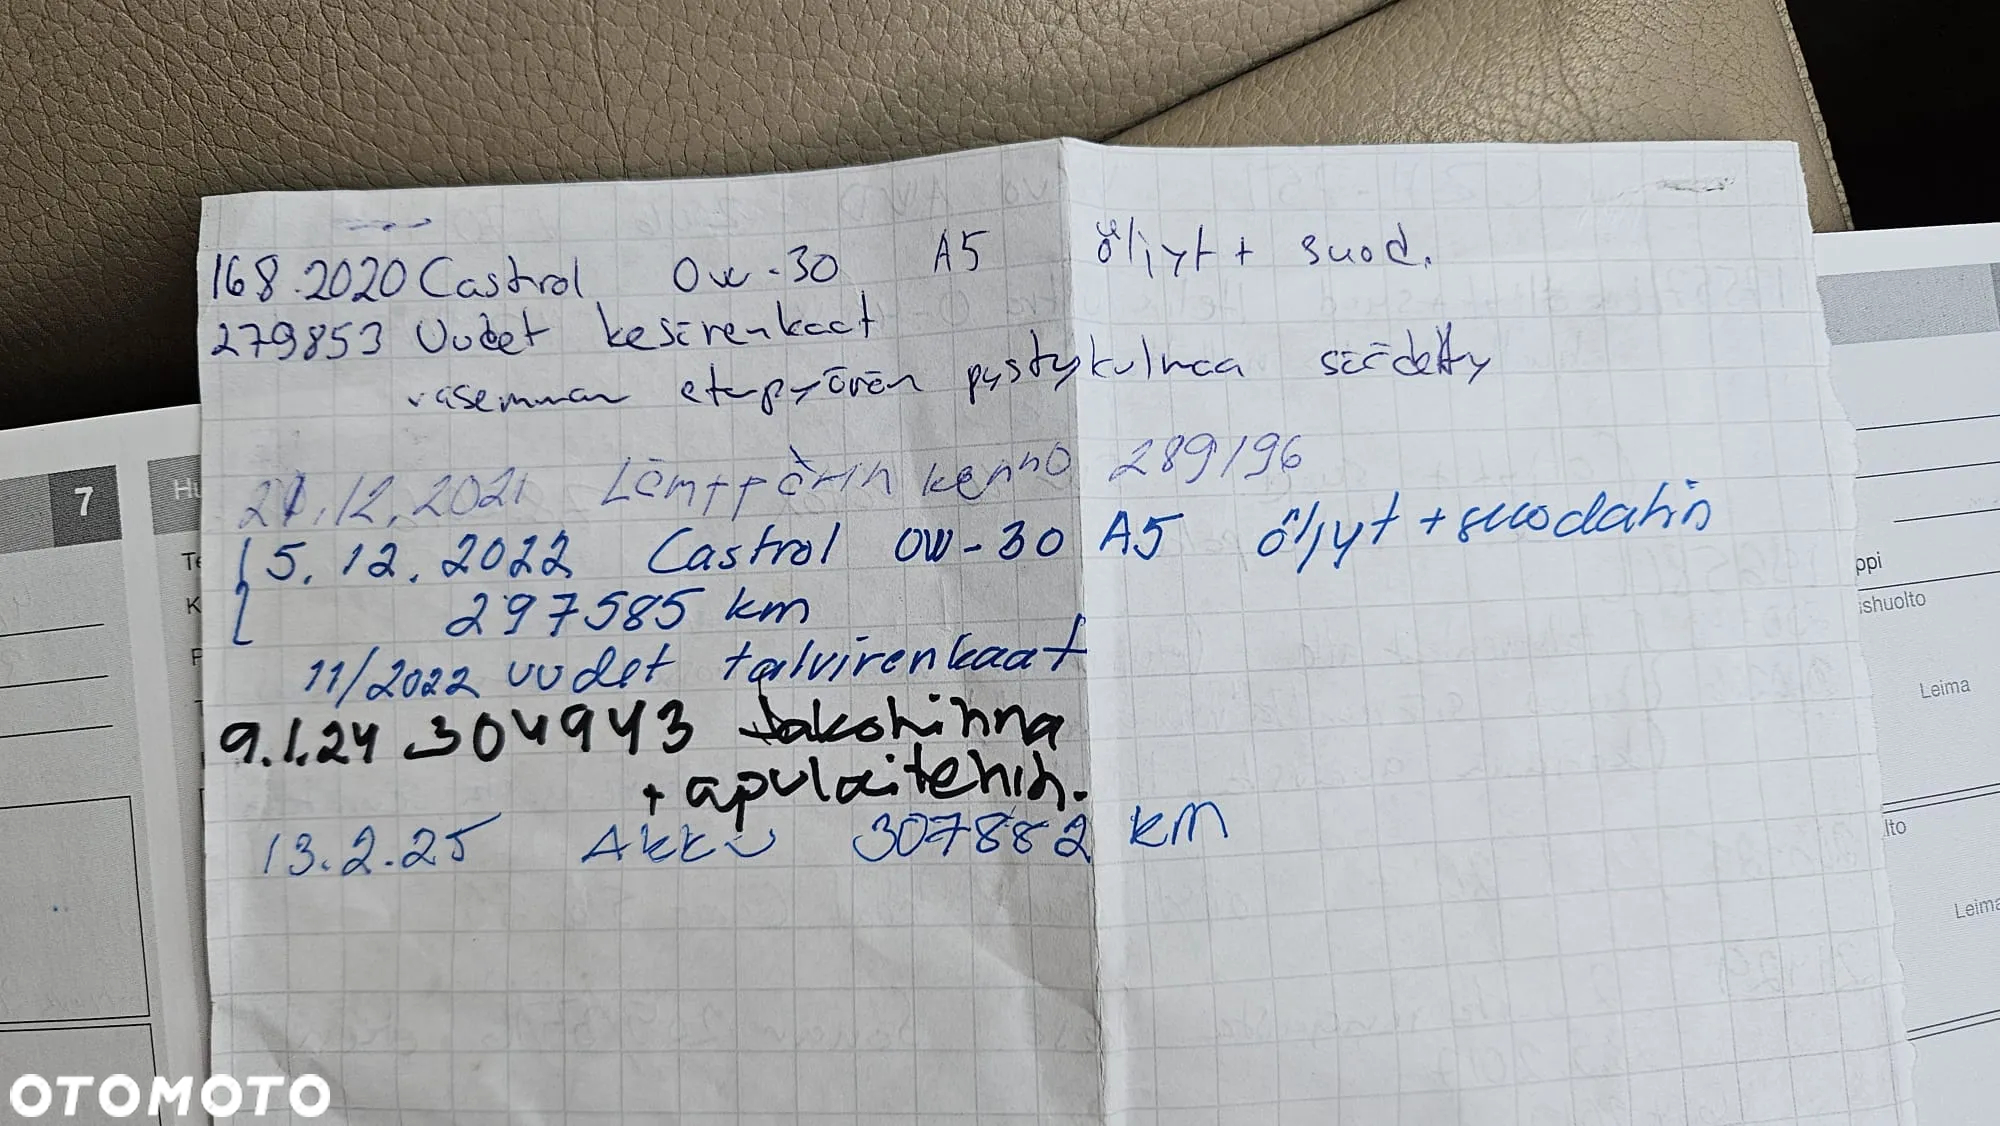 168.2020 Castrol 0W-30 A5 öljyt + suod.
279853 Uudet kesärenkaat
vasemman etupyörän pystykulmaa säädetty
21.12.2021 Lämppärin kenno 289196
15.12.2022 Castrol 0W-30 A5 öljyt + suodatin
297585 km
11/2022 uudet talvirenkaat
9.1.24 304943 Jakohihna
+ apulaitehih.
13.2.25 Akku 307882 km
7
Hu
Te
K
P
ppi
ishuolto
Leima
lto
Leima
OTOMOTO